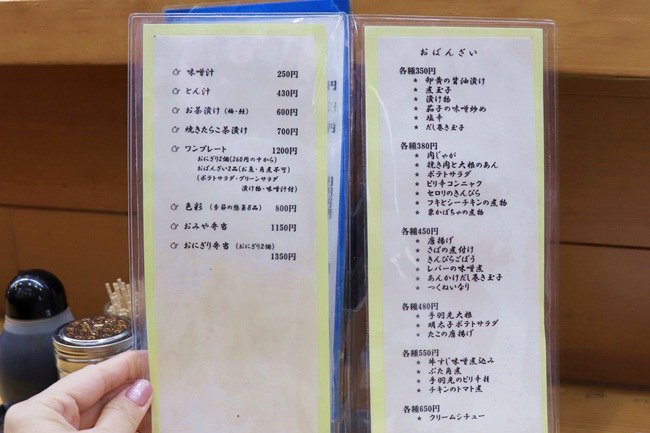 味噌汁 250円
とん汁 430円
お茶漬け (梅・鮭) 600円
焼きたらこ茶漬け 700円
ワンプレート 1200円
おにぎり2個(260円の中から)
おばんざい2品(お魚・角煮不可)
(ポテトサラダ・グリーンサラダ
漬け物・味噌汁付)
色彩 (季節の惣菜8品) 800円
おみや弁当 1150円
おにぎり弁当 (おにぎり2個)
1350円
おばんざい
各種350円
★ 卵黄の醤油漬け
★ 煮玉子
★ 漬け物
★ 茄子の味噌炒め
★ 塩辛
★ だし巻き玉子
各種380円
★ 肉じゃが
★ 挽き肉と大根のあん
★ ポテトサラダ
★ ピリ辛コンニャク
★ セロリのきんぴら
★ フキとシーチキンの煮物
★ 栗かぼちゃの煮物
各種450円
★ 唐揚げ
★ さばの煮付け
★ きんぴらごぼう
★ レバーの味噌煮
★ あんかけだし巻き玉子
★ つくねいなり
各種480円
★ 手羽先大根
★ 明太子ポテトサラダ
★ たこの唐揚げ
各種550円
★ 牛すじ味噌煮込み
★ ぶた角煮
★ 手羽先のピリ辛揚
★ チキンのトマト煮
各種650円
★ クリームシチュー